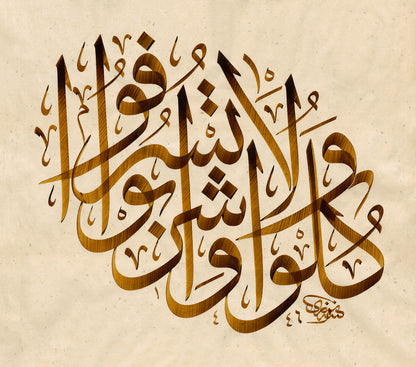 كُلُوا وَاشْرَبُوا
وَلَا تُسْرِفُوا